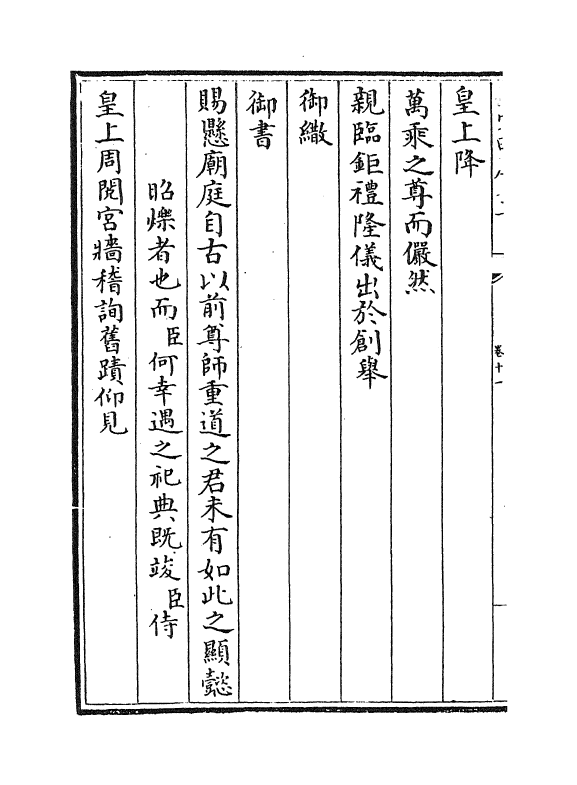 皇上降
萬乘之尊而儼然
親臨鉅禮隆儀出於創舉
御繖
御書
賜懸廟庭自古以前尊師重道之君未有如此之顯懿
昭爍者也而臣何幸遇之祀典既竣臣侍
皇上周閱宮牆稽詢舊蹟仰見
卷十一